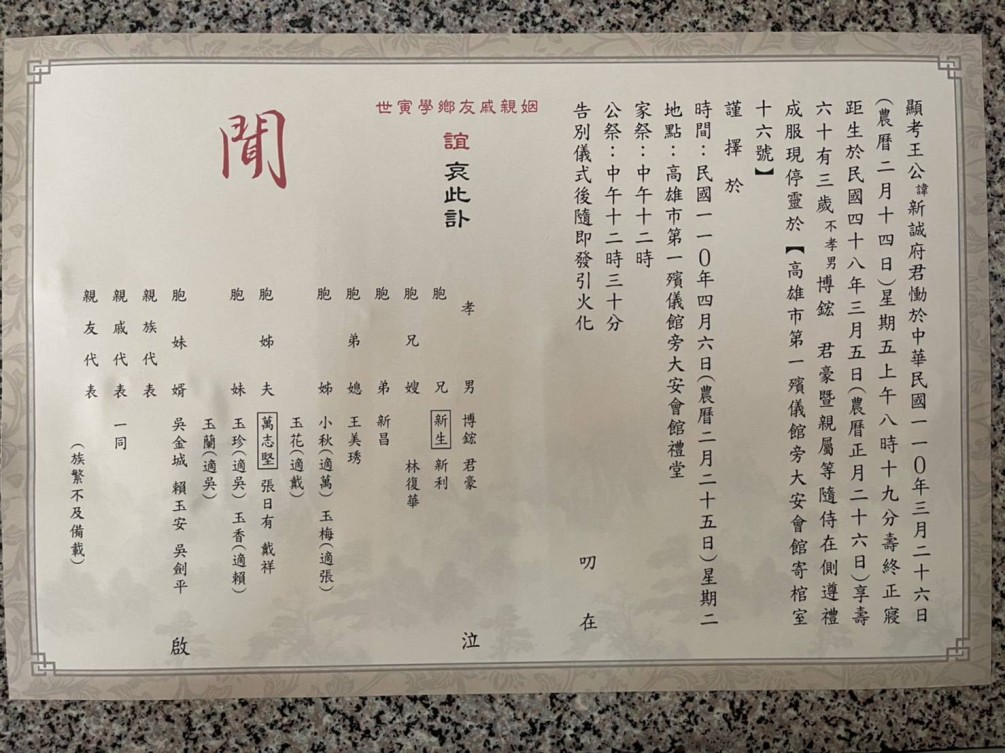 顯考王公諱新誠府君慟於中華民國一一0年三月二十六日
(農曆二月十四日)星期五上午八時十九分壽終正寢
距生於民國四十八年三月五日(農曆正月二十六日)享壽
六十有三歲不孝男博鋐 君豪暨親屬等隨侍在側遵禮
成服現停靈於【高雄市第一殯儀館旁大安會館寄棺室
十六號】
謹擇於
時間：民國一一0年四月六日(農曆二月二十五日)星期二
地點：高雄市第一殯儀館旁大安會館禮堂
家祭：中午十二時
公祭：中午十二時三十分
告別儀式後隨即發引火化
叨在
世寅學鄉友戚親姻
誼哀此訃
聞
孝男 博鋐 君豪 泣
胞兄 新生 新利
胞兄嫂 林復華
胞弟 新昌
胞弟媳 王美琇
胞姊 小秋(適萬) 玉梅(適張)
玉花(適戴)
胞姊夫 萬志堅 張日有 戴祥
胞妹 玉珍(適吳) 玉香(適賴)
玉蘭(適吳)
胞妹婿 吳金城 賴玉安 吳劍平 啟
親族代表
親戚代表 一同
親友代表
(族繁不及備載)